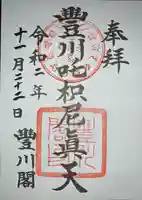 奉拝
豊川吒枳尼眞天
令和二年
十一月二十二日
豊川閣